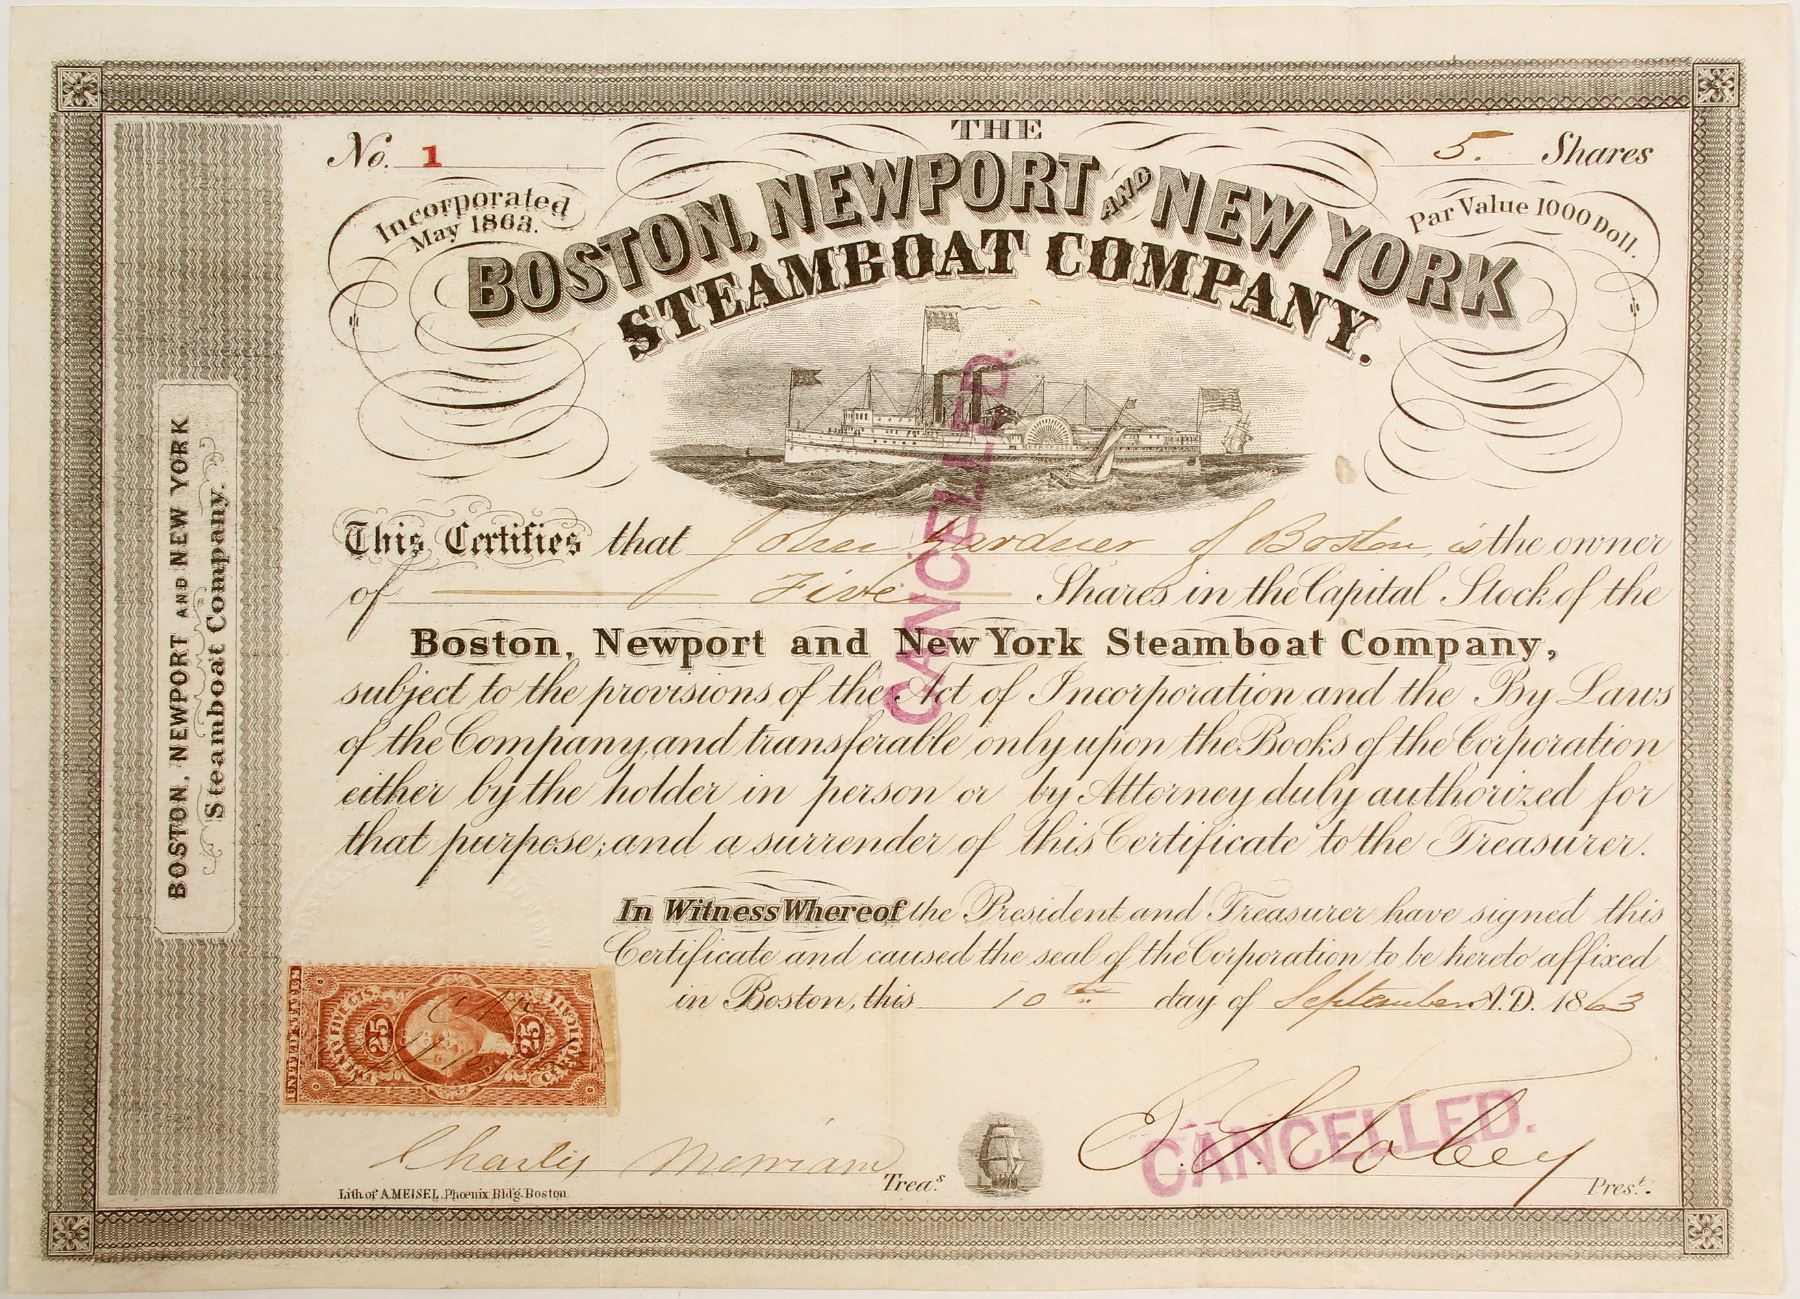 No. 1
5. Shares
Incorporated
May 1863.
Par Value 1000 Doll.
THE
BOSTON, NEWPORT AND NEW YORK
STEAMBOAT COMPANY.
This Certifies that John Gardner of Boston, is the owner
of Five Shares in the Capital Stock of the
Boston, Newport and New York Steamboat Company,
subject to the provisions of the Act of Incorporation and the By Laws
of the Company, and transferable only upon the Books of the Corporation
either by the holder in person or by Attorney duly authorized for
that purpose; and a surrender of this Certificate to the Treasurer.
In Witness Whereof the President and Treasurer have signed this
Certificate and caused the seal of the Corporation to be hereto affixed
in Boston, this 10th day of September A.D. 1863
Charles Merriam Treas.
E. S. Tobey Prest.
Lith of A. MEISEL, Phoenix Bldg. Boston
BOSTON, NEWPORT AND NEW YORK
Steamboat Company.
CANCELLED.
CANCELLED.
UNITED STATES
TWENTY FIVE CENTS
25
25
CERTIFICATE